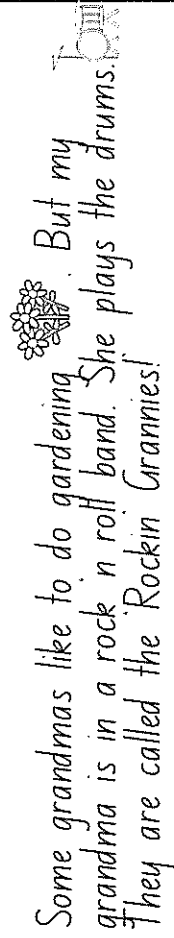 Some grandmas like to do gardening. But my
grandma is in a rock n roll band. She plays the drums.
They are called the Rockin Grannies!